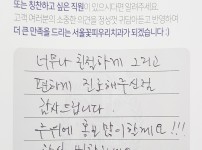 또는 칭찬하고 싶은 직원이 있으시다면 알려주세요.
고객 여러분의 소중한 의견을 정성껏 귀담아듣고 반영하여
더 큰 만족을 드리는 서울꽃피우리치과가 되겠습니다 :)
너무나 친절하게 그리고
편하게 진료해주신점
감사드립니다.
주변에 홍보 많이할께요!!!